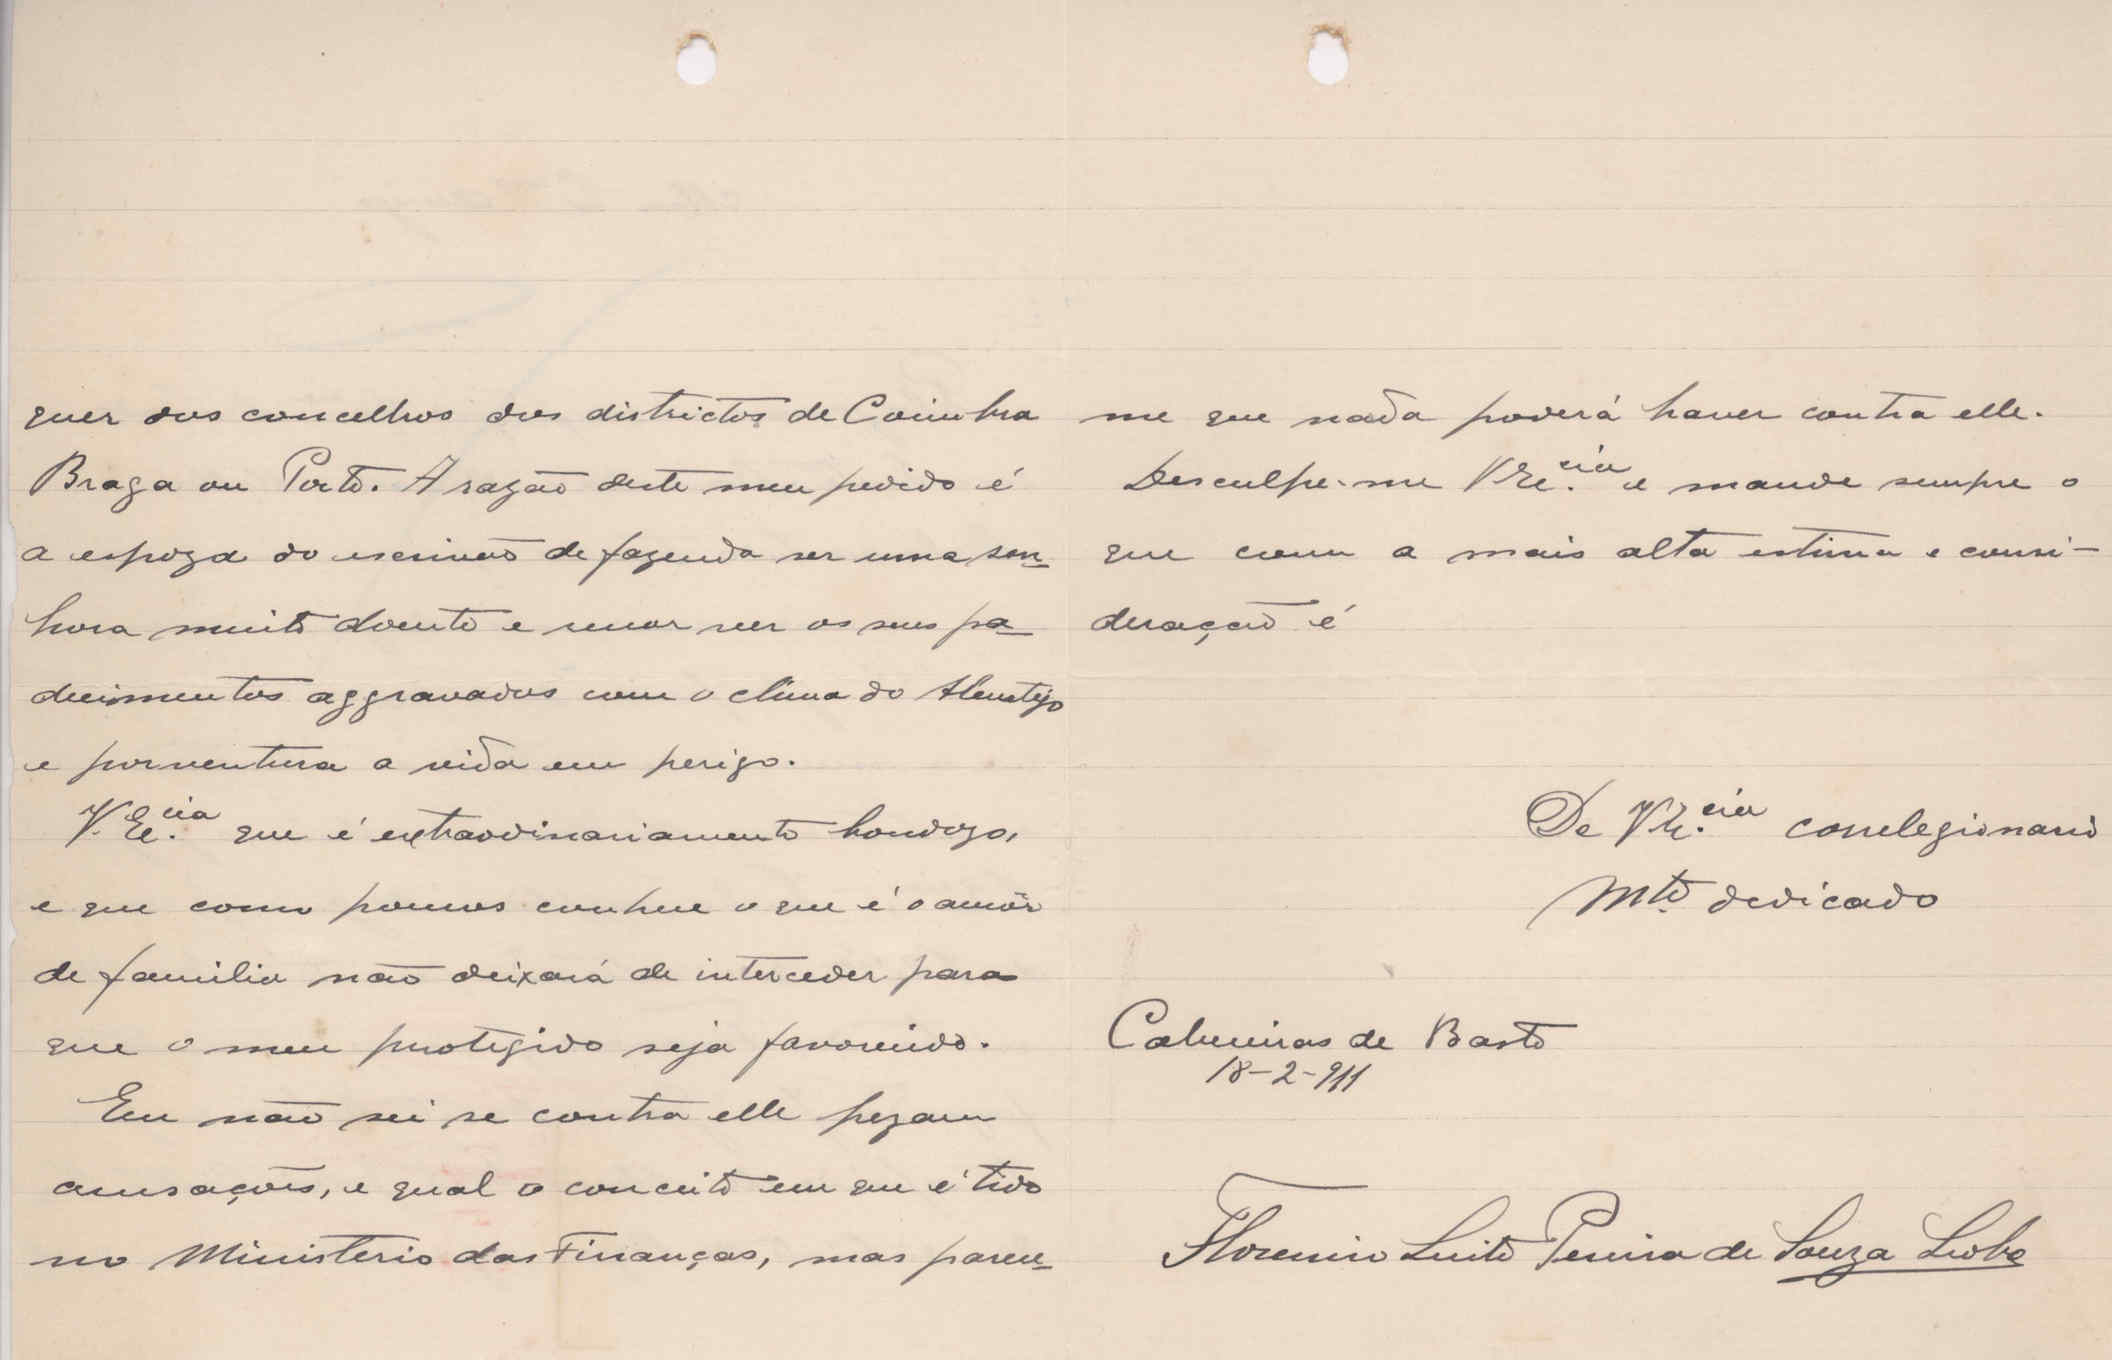 quer dos concelhos dos districtos de Coimbra
Braga ou Porto. A razão deste meu pedido é
a espoza do escrivão de fazenda ser uma sen-
hora muito doente e ver os seus pa-
decimentos aggravados com o clima do Alemtejo
e porventura a vida em perigo.
V. Ex.cia que é extraordinariamente bondozo,
e que como poucos conhece o que é o amôr
de familia não deixará de interceder para
que o meu protegido seja favorecido.
Eu não sei se contra elle pezam
acusações, e qual o conceito em que é tido
no Ministerio das Finanças, mas parece-
me que nada poderá haver contra elle.
Desculpe-me V Ex.cia e mande sempre o
que com a mais alta estima e consi-
deração é
De V Ex.cia correlegionario
Mto. dedicado
Cabeceiras de Basto
18-2-911
Florencio Leite Pereira de Souza Lobo